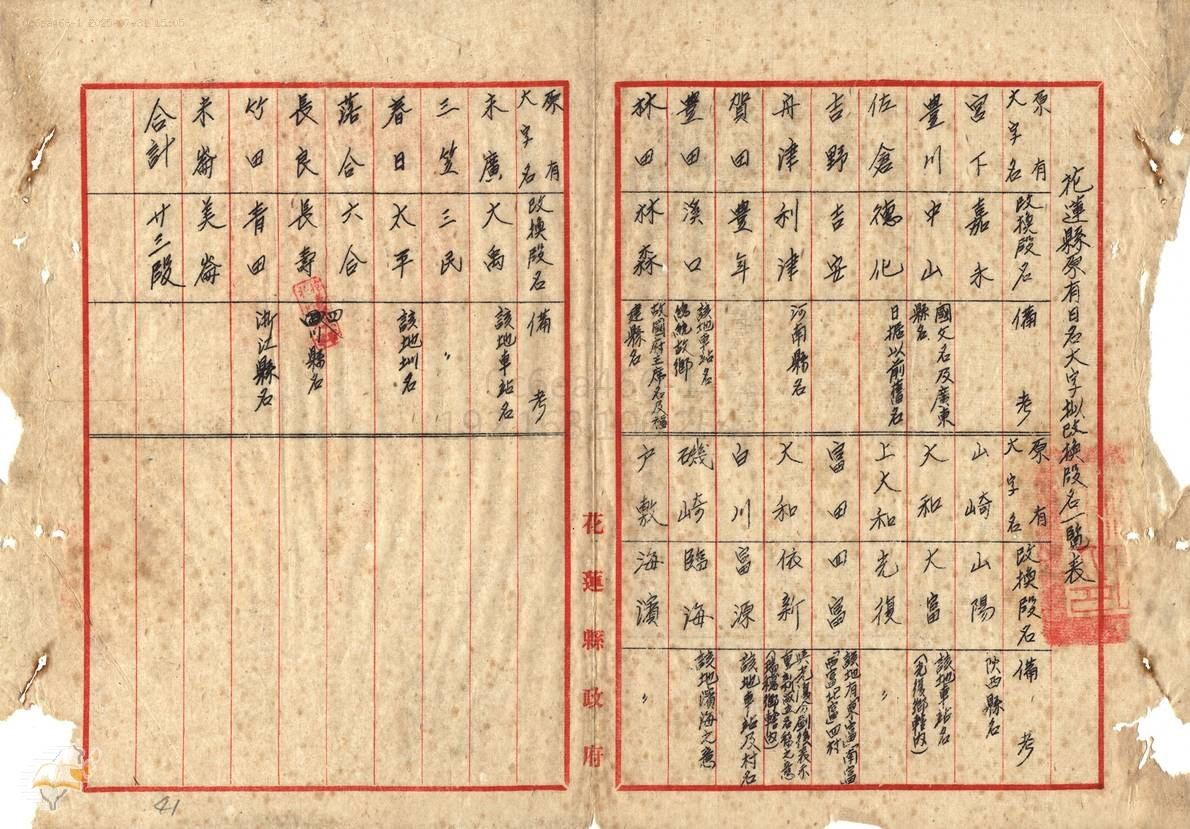 花蓮縣原有日名大字拟改換段名一覽表
原有大字名 改換段名 備考
宮下 嘉禾
豊川 中山 國父名及廣東縣名
佐倉 德化 日据以前舊名
吉野 吉安
舟津 利津 河南縣名
賀田 豊年
豊田 溪口 該地車站名 總統故鄉
林田 林森 故國府主席名及福建縣名
原有大字名 改換段名 備考
山崎 山陽 陝西縣名
大和 大富 該地車站名(光復鄉轄內)
上大和 光復 〃
富田 四富 該地有東富「南富「西富北富四村
大和 依新
白川 富源 該地車站及村名
磯崎 臨海 該地濱海之意
戶敷 海濱 〃
花蓮縣政府
原有大字名 改換段名 備考
末廣 大禹 該地車站名
三笠 三民 〃
春日 太平 該地圳名
落合 六合
長良 長壽 四川縣名
竹田 青田 浙江縣名
米崙 美崙
合計 廿三段
41